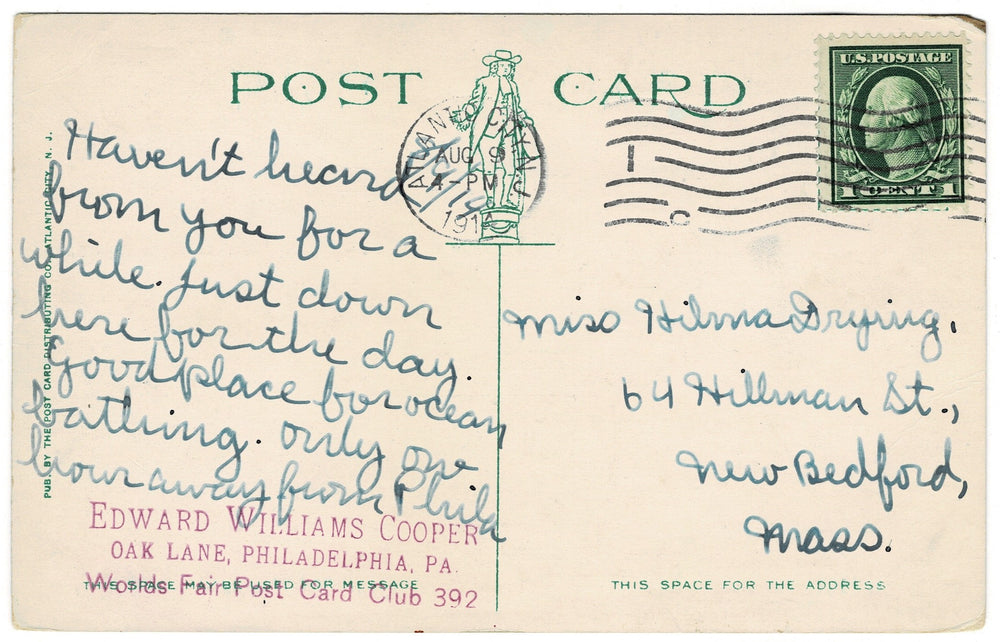 POST CARD
U.S. POSTAGE
1 CENT 1
ATLANTIC CITY N.J.
AUG 9
-PM
1914
PUB. BY THE POST CARD DISTRIBUTING CO., ATLANTIC CITY, N. J.
Haven't heard
from you for a
while. Just down
here for the day.
Good place for ocean
bathing. only one
hour away from Phila
EDWARD WILLIAMS COOPER
OAK LANE, PHILADELPHIA, PA.
THIS SPACE MAY BE USED FOR MESSAGE
Worlds Fair Post Card Club 392
Miss Hilma Drying.
64 Hillman St.,
New Bedford,
Mass.
THIS SPACE FOR THE ADDRESS